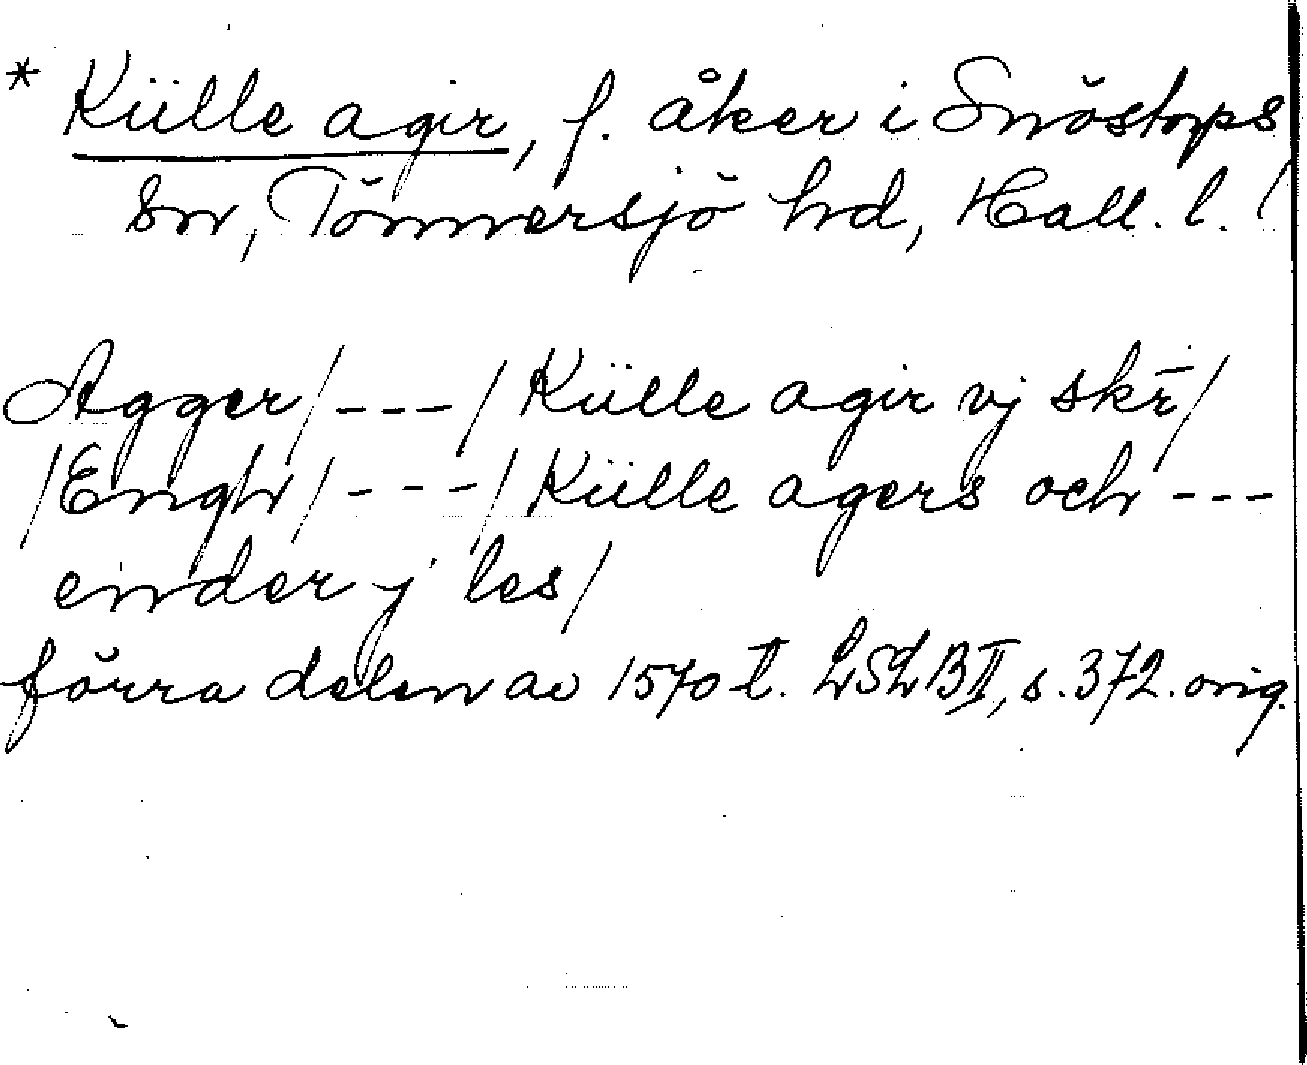 * Külle agir, f. åker i Snöstorps
sn, Tönnersjö hd, Hall. l.
Agger/---/ Külle agir vj skr̄/
/Engh/---/ Külle agers och ---
einder j les/
förra delen av 1570-t. LSLB II, s. 372. orig.